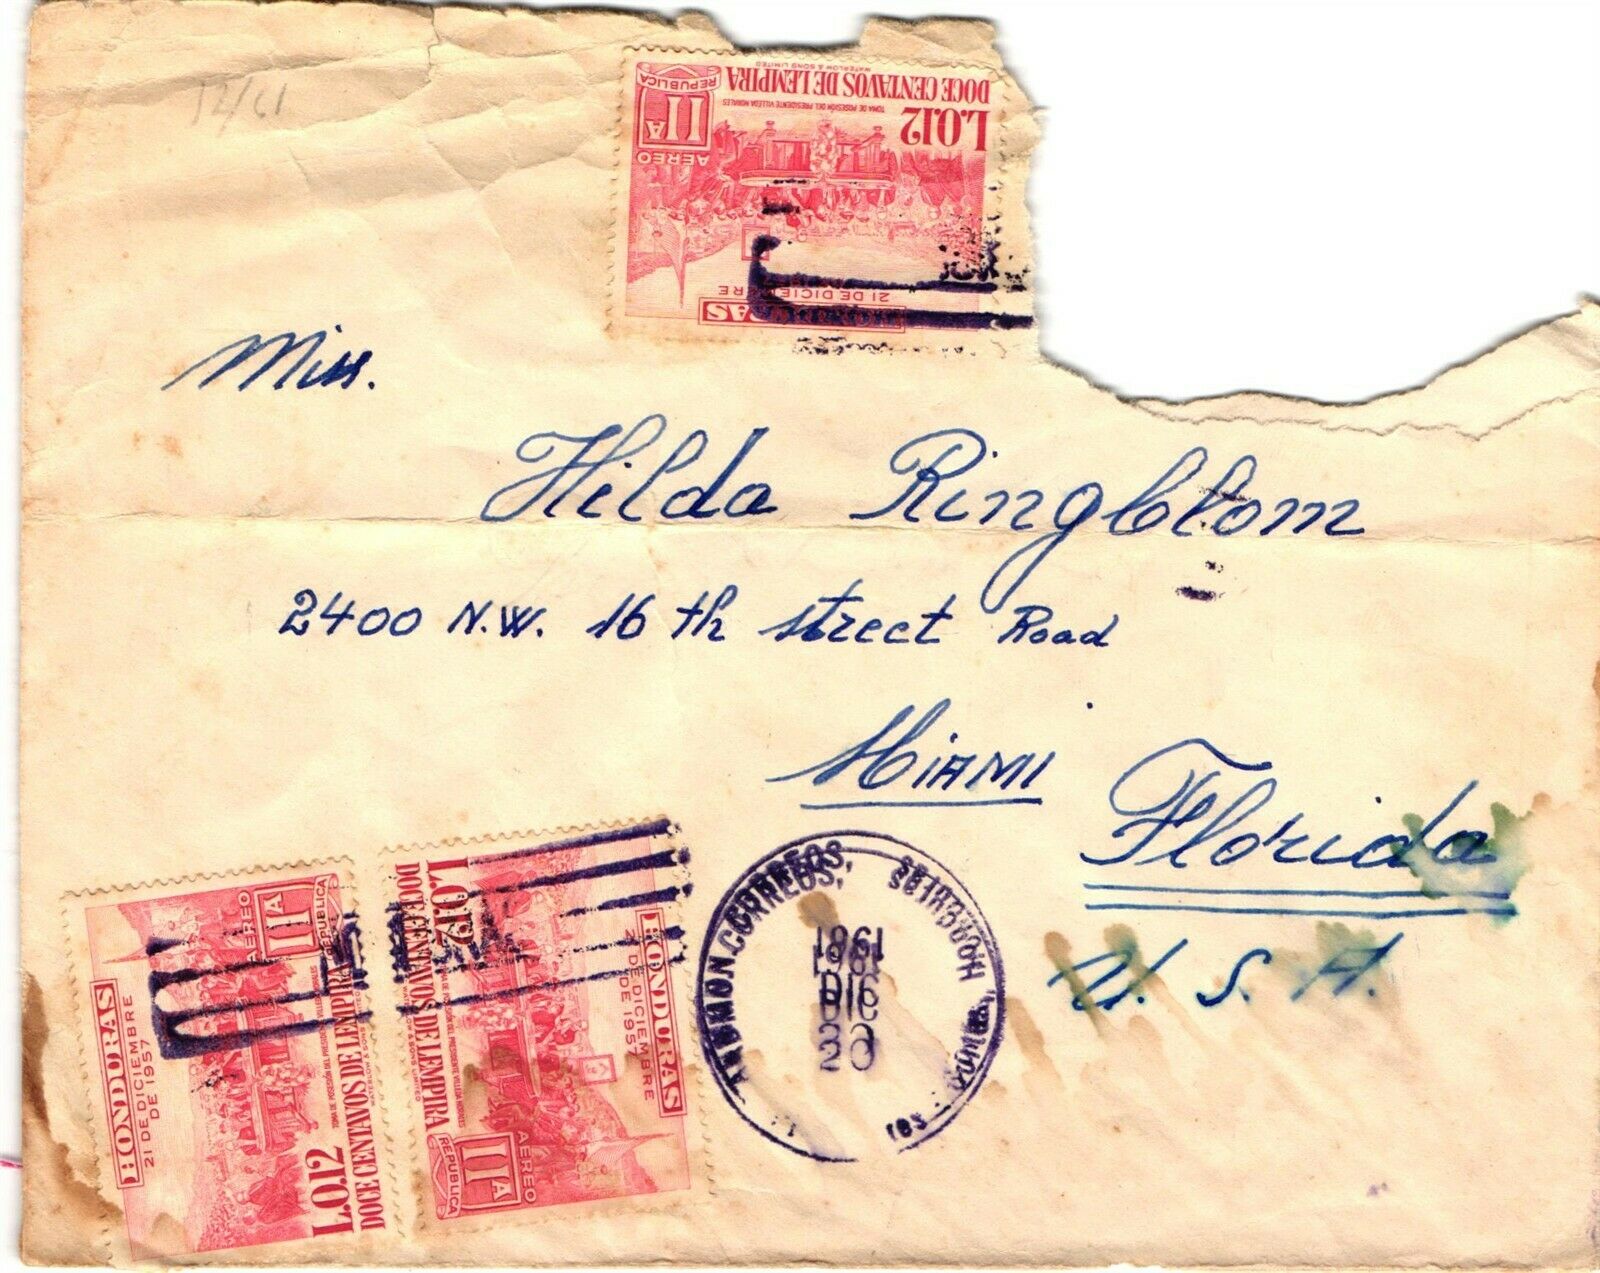 12/61
HONDURAS
21 DE DICIEMBRE
AEREO
IIA
REPUBLICA
L.0.12
TOMA DE POSESIÓN DEL PRESIDENTE VILLEDA MORALES
DOCE CENTAVOS DE LEMPIRA
WATERLOW & SONS LIMITED
Miss.
Hilda Ringblom
2400 N.W. 16 th street Road
Miami Florida
U. S. A.
HONDURAS
21 DE DICIEMBRE
DE 1957
AEREO
IIA
REPUBLICA
L.0.12
TOMA DE POSESIÓN DEL PRESIDENTE VILLEDA MORALES
DOCE CENTAVOS DE LEMPIRA
WATERLOW & SONS LIMITED
HONDURAS
DE DICIEMBRE
DE 1957
AEREO
IIA
REPUBLICA
L.0.12
DEL PRESIDENTE VILLEDA MORALES
DOCE CENTAVOS DE LEMPIRA
& SONS LIMITED
CORREOS,
1961
DIC
20